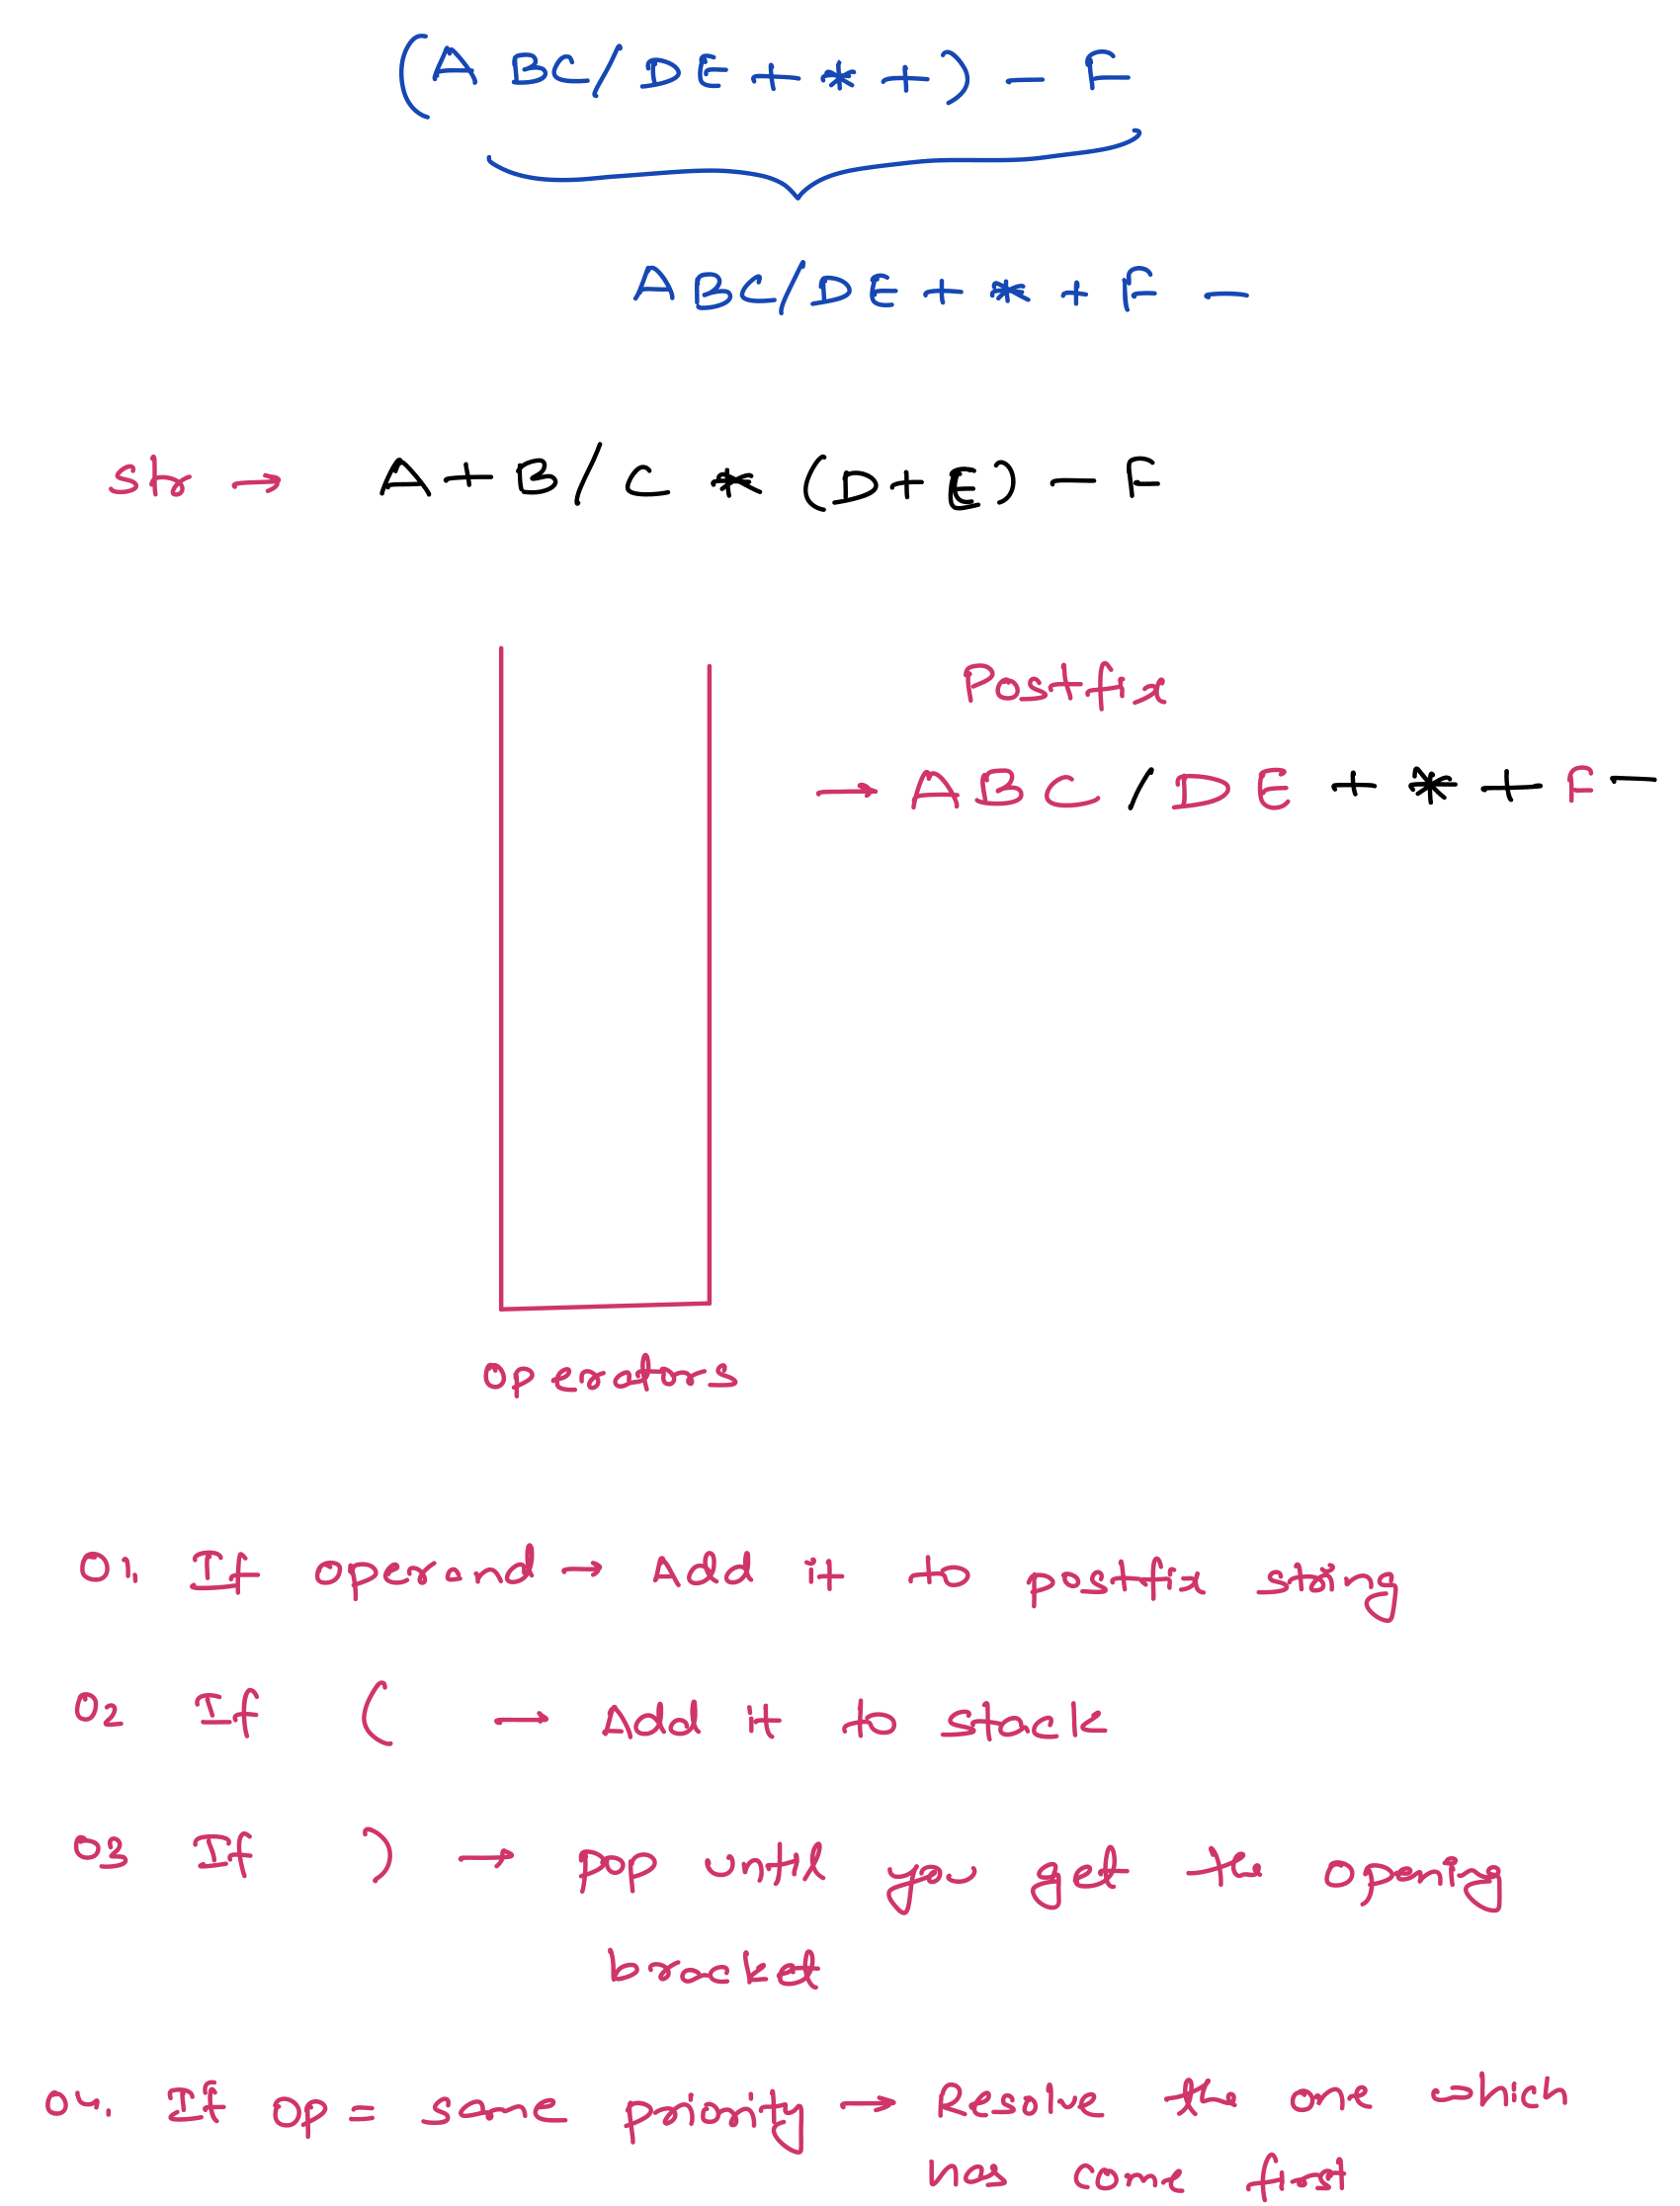 (A BC/DE+*+) - F
ABC/DE+*+F-
str → A+B/C*(D+E)-F
Postfix
→ ABC/DE+*+F-
operators
01. If operand → Add it to postfix string
02 If ( → Add it to stack
03 If ) → pop until you get the opening
bracket
04. If op = same priority → Resolve the one which
has come first